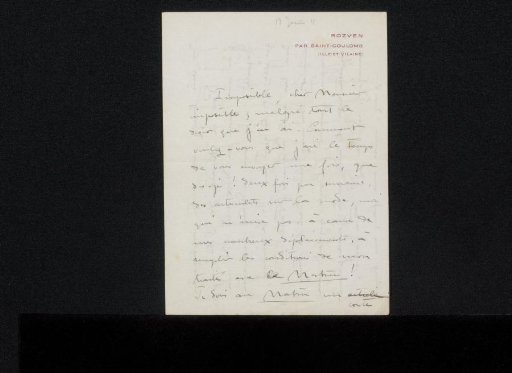 ROZVEN
PAR SAINT-COULOMB
(ILLE-ET-VILAINE)
Impossible, cher Monsieur
impossible, malgré tout le
désir que j'en ai. Comment
voulez-vous que j'aie le temps
de vous envoyer une fois, que
dis-je! deux fois par semaine,
des actualités sur la mode, moi
qui n'arrive pas, à cause de
mes nombreux déplacements, à
remplir les conditions de mon
traité avec Le Matin!
Je dois au Matin un article
conte